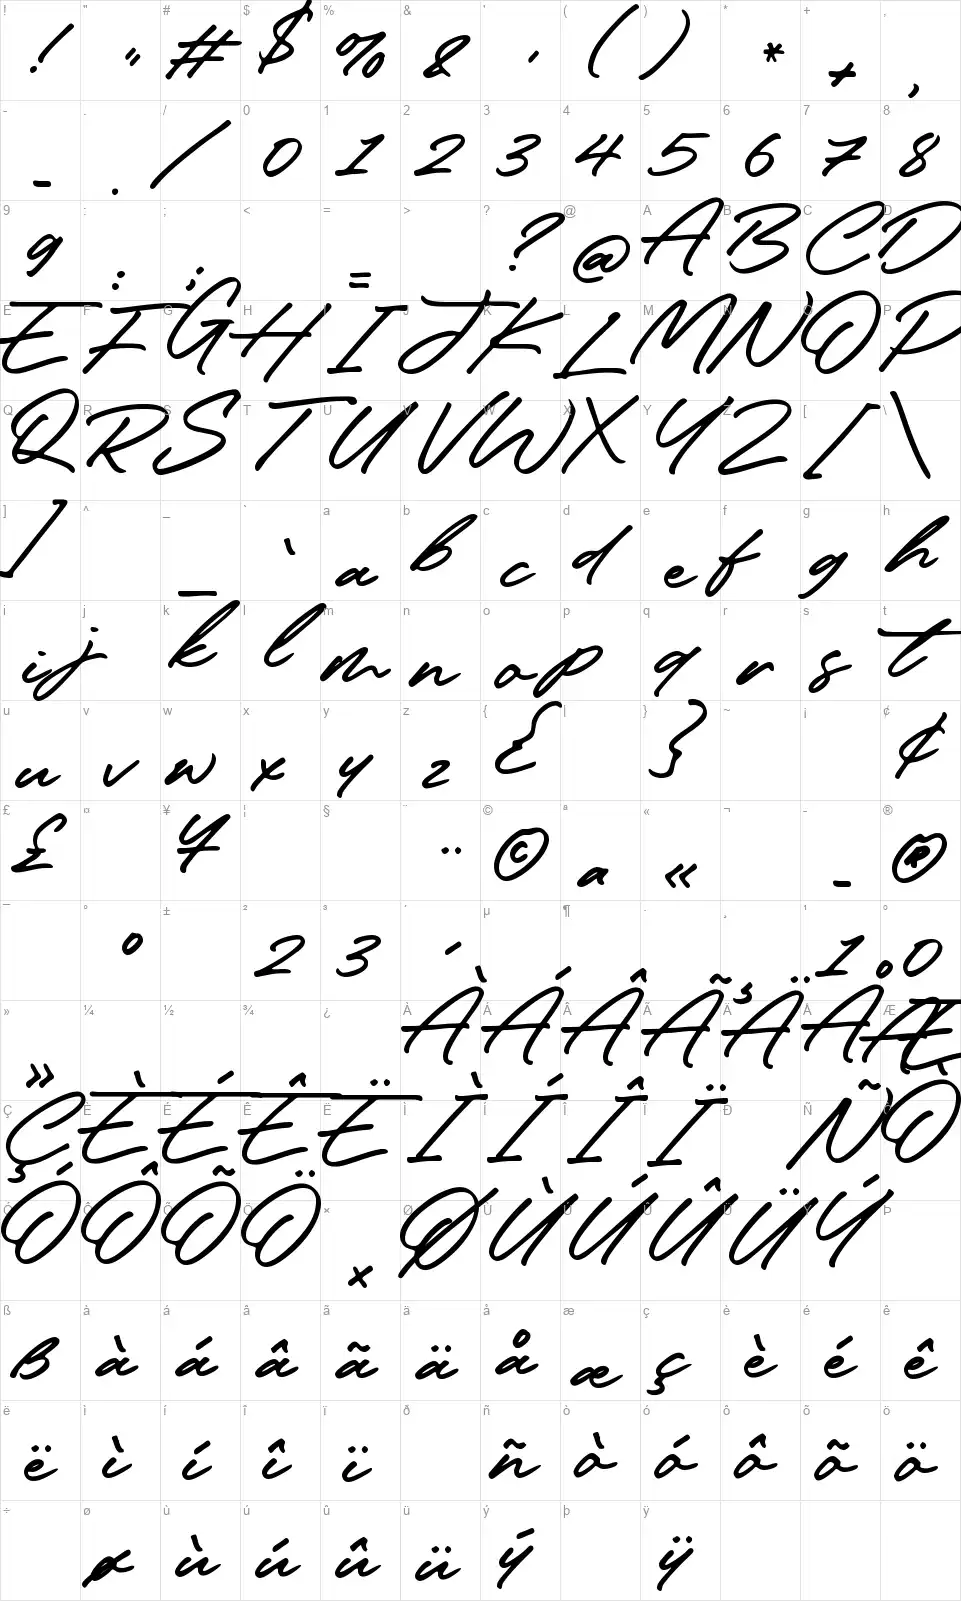 ! " # $ % & ' ( ) * + ,
! " # $ % & ' ( ) * + ,
- . / 0 1 2 3 4 5 6 7 8
- . / 0 1 2 3 4 5 6 7 8
9 : ; < = > ? @ A B C D
9 : ; = ? @ A B C D
E F G H I J K L M N O P
E F G H I J K L M N O P
Q R S T U V W X Y Z [ \
Q R S T U V W X Y Z [ \
] ^ _ ` a b c d e f g h
] _ ` a b c d e f g h
i j k l m n o p q r s t
i j k l m n o p q r s t
u v w x y z { | } ~ ¡ ¢
u v w x y z { } ¢
£ ¤ ¥ ¦ § ¨ © ª « ¬ - ®
£ ¥ ¨ © ª « - ®
¯ ° ± ² ³ ´ µ ¶ · ¸ ¹ º
° 2 3 ´ ¸ 1 º 0
» ¼ ½ ¾ ¿ À Á Â Ã Ä Å Æ
» À Á Â Ã Ä Å Æ
Ç È É Ê Ë Ì Í Î Ï Ð Ñ Ò
Ç È É Ê Ë Ì Í Î Ï Ñ Ò
Ó Ô Õ Ö × Ø Ù Ú Û Ü Ý Þ
Ó Ô Õ Ö × Ø Ù Ú Û Ü Ý
ß à á â ã ä å æ ç è é ê
ß à á â ã ä å æ ç è é ê
ë ì í î ï ð ñ ò ó ô õ ö
ë ì í î ï ñ ò ó ô õ ö
÷ ø ù ú û ü ý þ ÿ
ø ù ú û ü ý ÿ